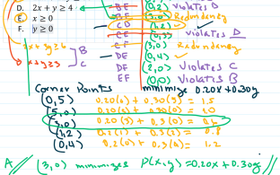 BF (2,0) Violates D
D. 2x + y ≥ 4
E. x ≥ 0
F. y ≥ 0
BE (3,0) Redundency
CD (1,2)
CE (0,3) Violates D
CF (3,0) Redundency
DE (0,4) ✓
DF (2,0) Violates C
EF (0,0) Violates B
x + y ≥ 3
B
C
Corner Points minimize 0.20x + 0.30y
(0,5) 0.20(0) + 0.30(5) = 1.5
(5,0) 0.20(5) + 0.30(0) = 1.0
(3,0) 0.20(3) + 0.3(0) = 0.6
(1,2) 0.2(1) + 0.3(2) = 0.8
(0,4) 0.2(0) + 0.3(4) = 1.2
A // (3,0) minimizes P(x,y) = 0.20x + 0.30y //